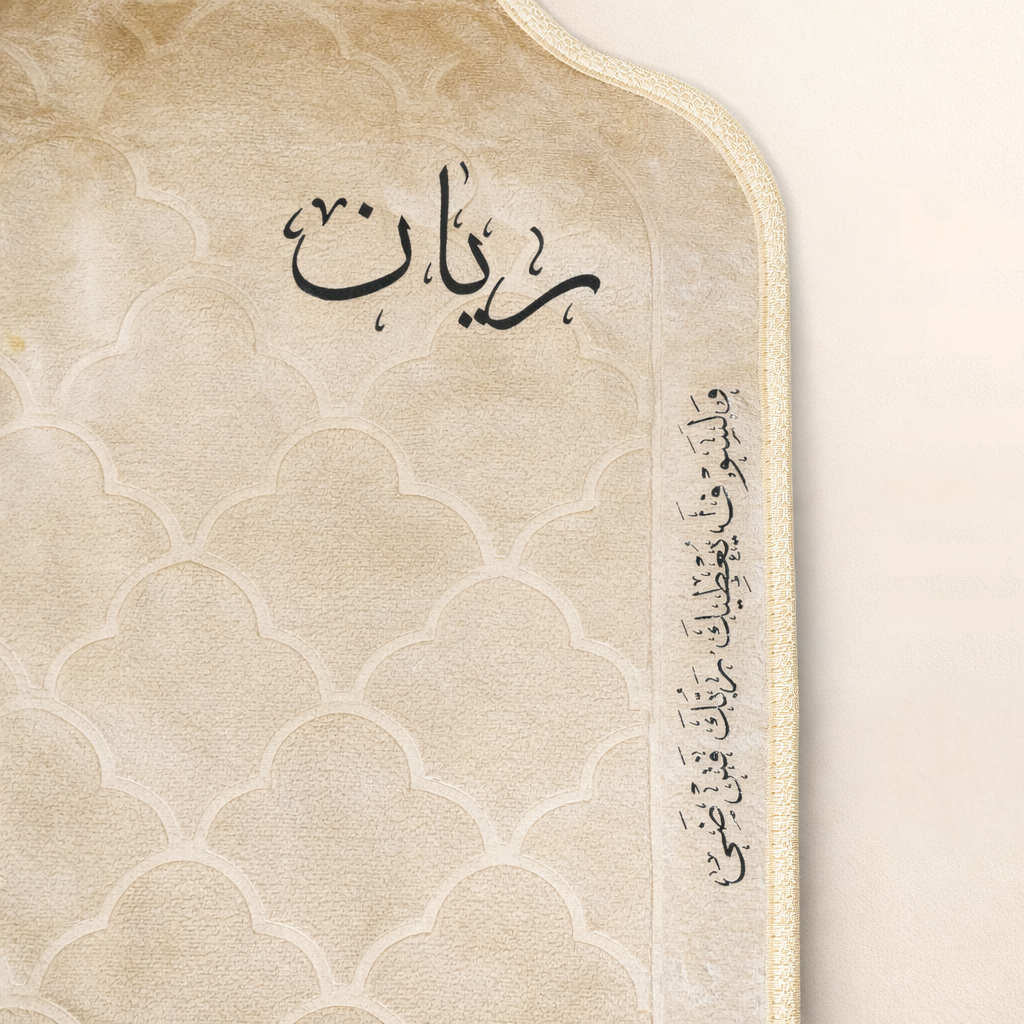 ريان
وَلَسَوْفَ يُعْطِيكَ رَبُّكَ فَتَرْضَىٰ